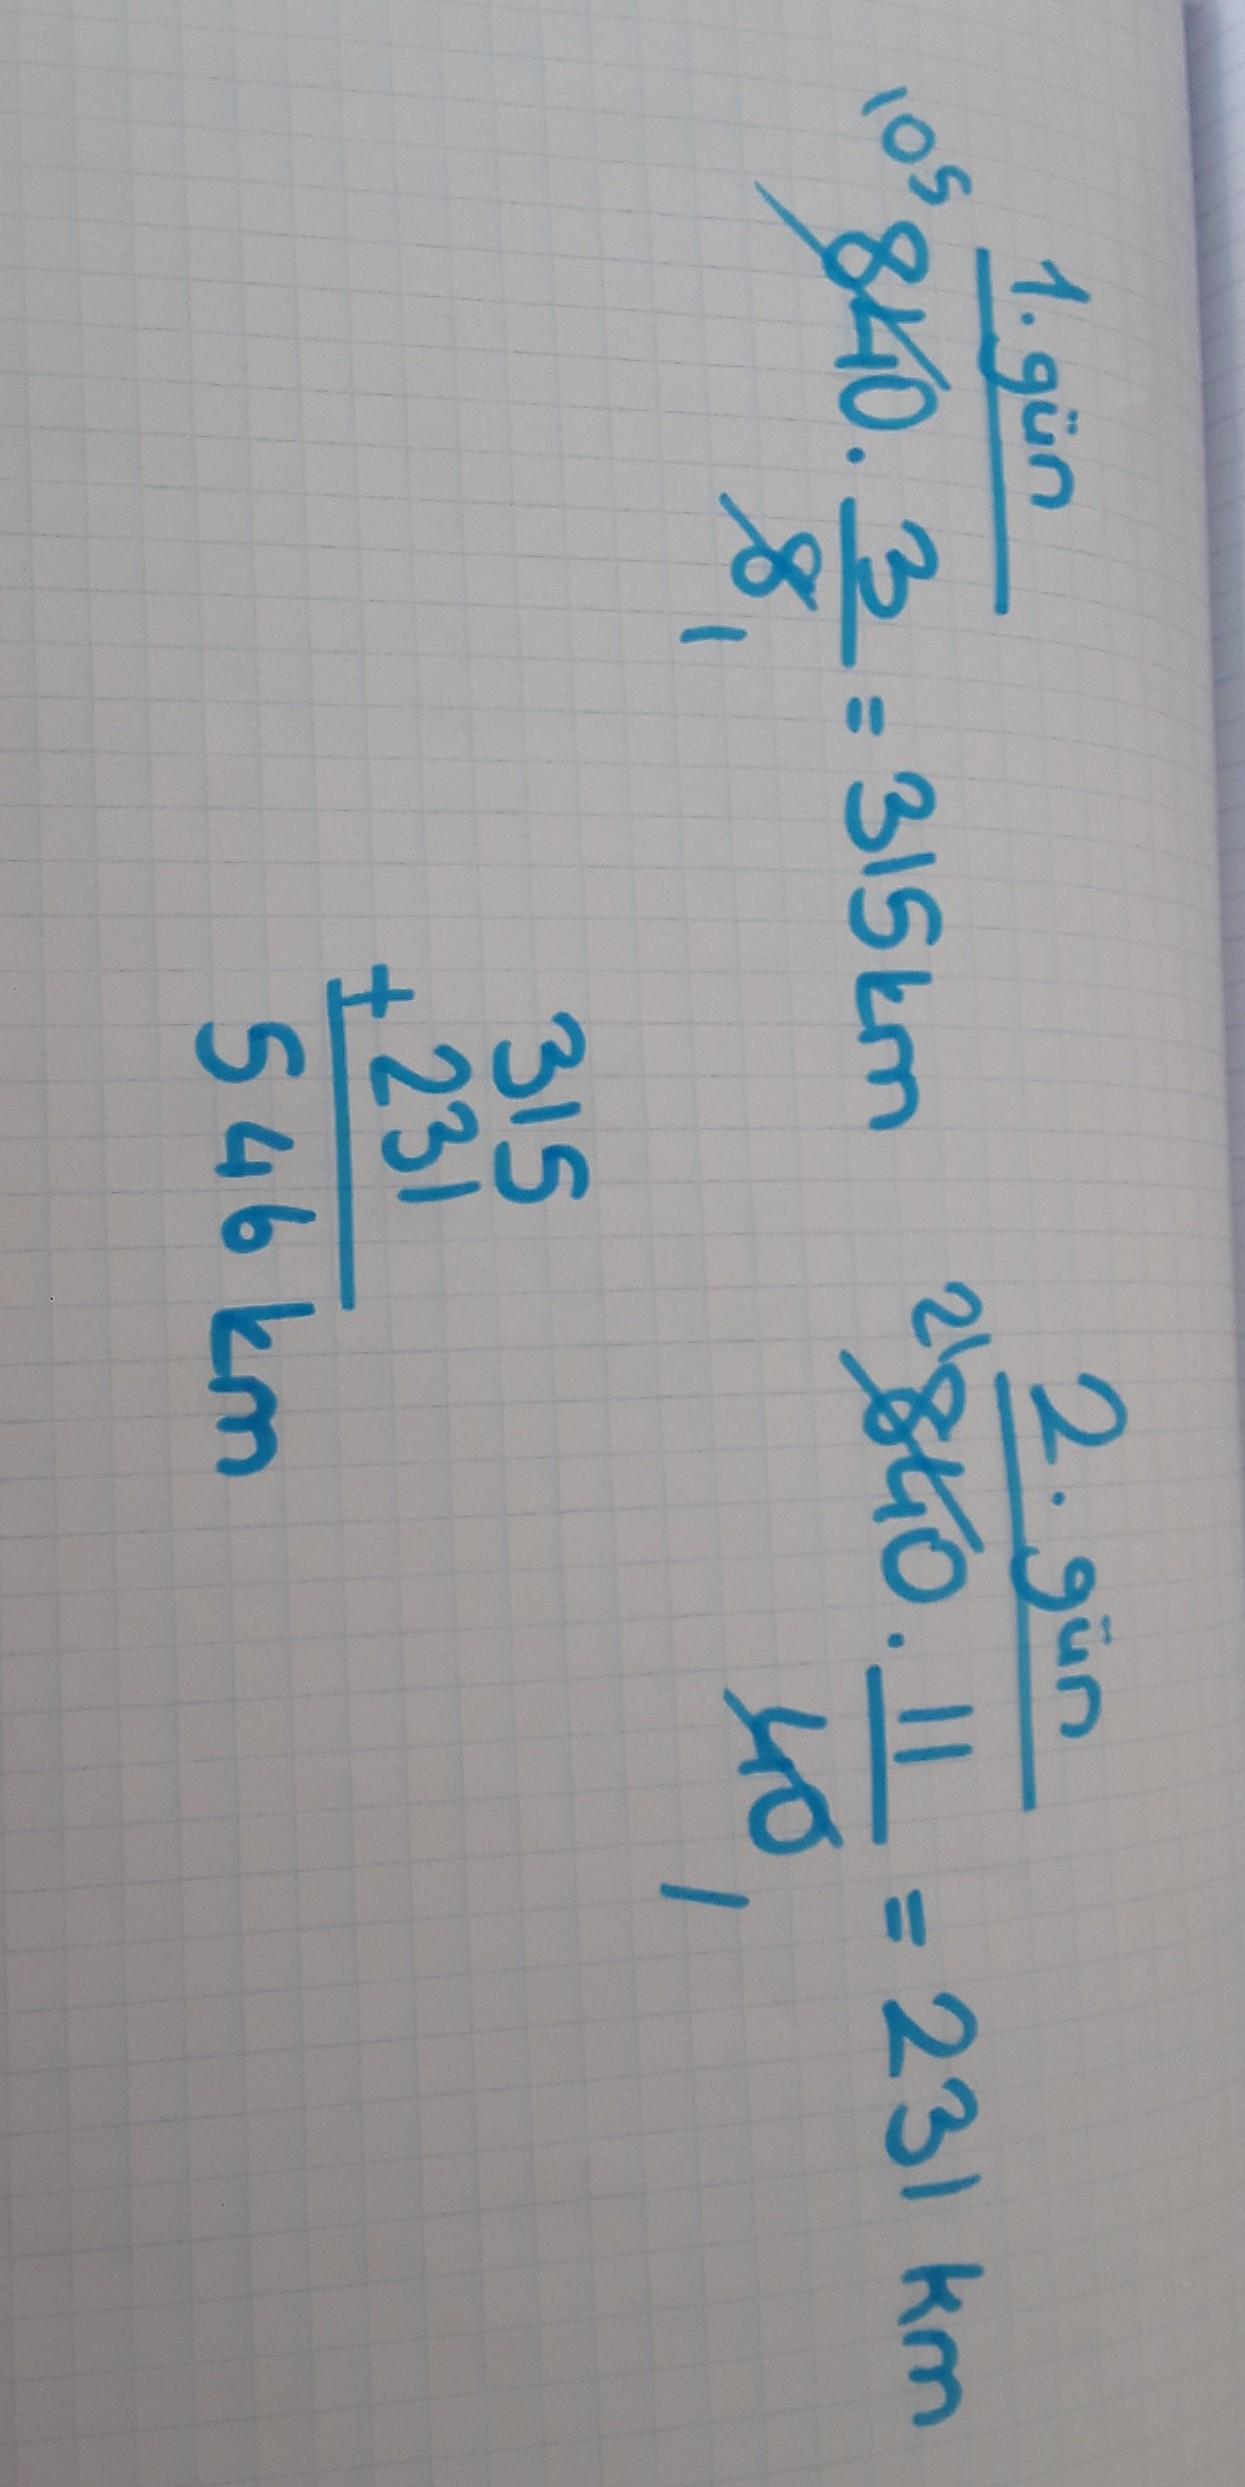 1. gün
105
840 . 3/8 = 315 km
1
2. gün
21
840 . 11/40 = 231 km
1
315
+ 231
546 km